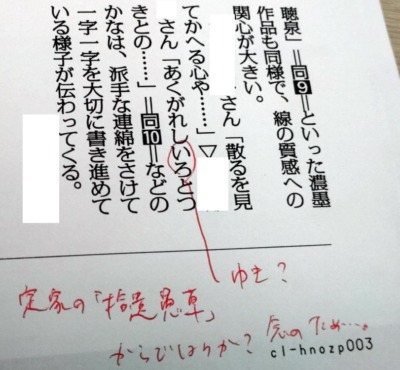 聴泉」＝同9＝といった濃墨
作品も同様で、線の質感への
関心が大きい。
さん「散るを見
てかへる心や……」▽
さん「あくがれしいろとつ
きとの……」＝同10＝などの
かなは、派手な連綿をさけて
一字一字を大切に書き進めて
いる様子が伝わってくる。
ゆき？
定家の「拾遺愚草」
からではないか？ 念のため…。
cl-hnozp003